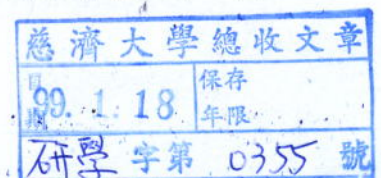 慈濟大學總收文章
日期 99. 1. 18 保存年限
研學字第 0355 號